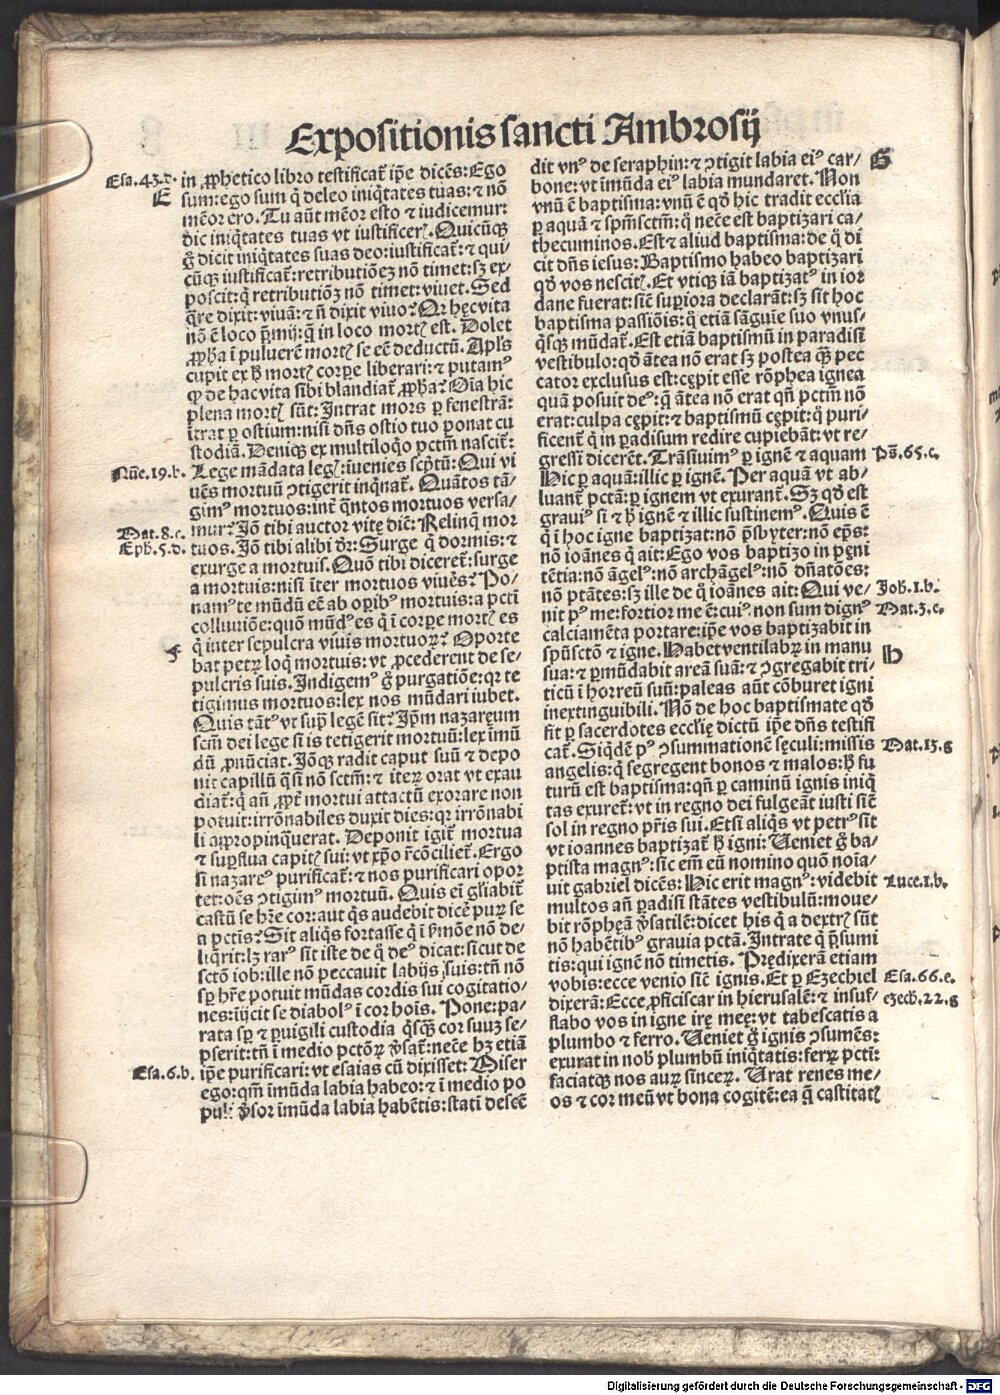 Expositionis sancti Ambrosij
Esa.43.d. in ꝓphetico libro testificat᷑ ip̄e dicēs: Ego
E sum: ego sum q̇ deleo iniq̇tates tuas: ⁊ nō
mēor ero. Tu aūt mēor esto ⁊ iudicemur:
dic iniq̇tates tuas vt iustificerꝭ. Quicūqꝫ
g̊ dicit iniq̇tates suas deo: iustificat᷑: ⁊ qui-
cūqꝫ iustificat᷑: retributiōeꝫ nō timet: sꝫ ex-
poscit: q̇ retributiōꝫ nō timet: viuet. Sed
q̄re dixit: viuā: ⁊ n̄ dixit viuo? Qꝛ hęc vita
nō ē loco p̄mij: q̇ in loco mortꝭ est. Dolet
ꝓpha ī puluerē mortꝭ se eē deductū. Apl's
cupit ex h̄ mortꝭ corꝑe liberari: ⁊ putamꝰ
ꝙ de hac vita sibi blandiat᷑ ꝓpha? Oīa hic
plena mortꝭ sūt: Intrat mors ꝑ fenestrā:
ītrat ꝑ ostium: nisi dn̄s ostio tuo ponat cu
stodiā. Deniqꝫ ex multiloq̇o pctm̄ nascit᷑:
Nūe.19.b. Lege mādata legꝭ: īuenies scp̄tū: Qui vi
uēs mortuū ↄtigerit inq̇nat᷑. Quātos tā-
gimꝰ mortuos: int᷑ q̇ntos mortuos versa-
Mat.8.c. mur? Iō tibi auctor vitę dic̄: Relinq̄ mor
Eph.5.d. tuos. Iō tibi alibi dr̄: Surge q̇ dormis: ⁊
exurge a mortuis. Quō tibi diceret᷑: surge
a mortuis: nisi īter mortuos viuēs? Po-
namꝰ te mūdū eē ab oꝑibꝰ mortuis: a pctī
colluuiōe: quō mūdꝰ es q̇ ī corꝑe mortꝭ es
q̇ inter sepulcra viuis mortuoꝝ? Oporte
F bat petrꝫ loq̇ mortuis: vt ꝓcederent de se-
pulcris suis. Indigemꝰ g̊ purgatiōe: qꝛ te
tigimus mortuos: lex nos mūdari iubet.
Quis tātꝰ vt suꝑ legē sit? Ip̄m nazareum
scm̄ dei lege si is tetigerit mortuū: lex īmū
dū ꝓnūciat. Iōqꝫ radit caput suū ⁊ depo
nit capillū q̇si nō sctm̄: ⁊ iteꝝ orat vt exau
diat᷑: q̇ an̄ ꝓpt᷑ mortui attactū exorare non
potuit: irrōnabiles duxit dies: qꝛ irrōnabi
li appropinquerat. Deponit igit᷑ mortua
⁊ suꝑflua capitꝭ sui: vt xp̄o rēcōciliet᷑. Ergo
si nazareꝰ purificat᷑: ⁊ nos purificari opor
tet: oēs ↄtigimꝰ mortuū. Quis ei gl̄iabit᷑
castū se hr̄e cor: aut q̇s audebit dicē puꝝ se
a pctīs? Sit aliq̇s fortasse q̇ ī p̄mōe nō de-
liq̇rit: lꝫ rarꝰ sit iste de q̇ deꝰ dicat: sicut de
sctō iob: ille nō peccauit labijs suis: tn̄ nō
sꝑ hr̄e potuit mūdas cordis sui cogitatio-
nes: iijcit se diabolꝰ ī cor hoīs. Pone: pa-
rata sꝑ ⁊ ꝑuigili custodia q̇sq̄ꝫ cor suuꝫ se-
pserit: tn̄ ī medio pctōꝝ v̄sat᷑: necē hꝫ etiā
Esa.6.b. ip̄e purificari: vt esaias cū dixisset: Miser
ego: qm̄ īmūda labia habeo: ⁊ ī medio po
puli v̄sor īmūda labia habētis: statī descē
dit vnꝰ de seraphin: ⁊ ↄtigit labia eiꝰ car- G
bone: vt imūda eiꝰ labia mundaret. Non
vnū ē baptisma: vnū ē qd̄ hic tradit eccl'ia
ꝑ aquā ⁊ spm̄sctm̄: q̇ necē est baptizari ca-
thecuminos. Est ⁊ aliud baptisma: de q̇ di
cit dn̄s iesus: Baptismo habeo baptizari
qd̄ vos nescitꝭ. Et vtiqꝫ iā baptizatꝰ in ior
dane fuerat: sic̄ suꝑiora declarāt: sꝫ sit hoc
baptisma passiōis: q̇ etiā sāguīe suo vnus-
q̇sqꝫ mūdat᷑. Est etiā baptismū in paradisi
vestibulo: qd̄ ātea nō erat sꝫ postea q̄ꝫ pec
cator exclusus est: cępit esse rōphea ignea
quā posuit deꝰ: q̄ ātea nō erat qn̄ pctm̄ nō
erat: culpa cępit: ⁊ baptismū cępit: q̇ puri-
ficent᷑ q̇ in ꝑadisum redire cupiebāt: vt re-
gressi dicerēt. Trāsiuimꝰ ꝑ ignē ⁊ aquam Ps̄.65.c.
Hic ꝑ aquā: illic ꝑ ignē. Per aquā vt ab-
luant᷑ pctā: ꝑ ignem vt exurant᷑. Sꝫ qd̄ est
grauiꝰ si ⁊ h̄ ignē ⁊ illic sustinemꝰ. Quis ē
q̇ ī hoc igne baptizat: nō p̄sbyter: nō ep̄s:
nō ioānes q̇ ait: Ego vos baptizo in pęni
tētia: nō āgelꝰ: nō archāgelꝰ: nō dn̄atōes:
nō ptātes: sꝫ ille de q̇ ioānes ait: Qui ve- Joh.1.b.
nit pꝰ me: fortior me ē: cuiꝰ non sum dignꝰ Mat.3.c.
calciamēta portare: ip̄e vos baptizabit in
spūsctō ⁊ igne. Habet ventilabꝝ in manu H
sua: ⁊ ꝑmūdabit areā suā: ⁊ ↄgregabit tri-
ticū ī horreū suū: paleas aūt cōburet igni
inextinguibili. Nō de hoc baptismate qd̄
fit ꝑ sacerdotes ecclīę dictū ip̄e dn̄s testifi
cat᷑. Siq̇dē pꝰ ↄsummationē sęculi: missis Mat.13.g
angelis: q̇ segregent bonos ⁊ malos: h̄ fu
turū est baptisma: qn̄ ꝑ caminū ignis iniq̇
tas exuret᷑: vt in regno dei fulgeāt iusti sic̄
sol in regno pr̄is sui. Etsi aliq̇s vt petrꝰ sit
vt ioannes baptizat᷑ h̄ igni: Ueniet g̊ ba-
ptista magnꝰ: sic em̄ eū nomino quō noīa-
uit gabriel dicēs: Hic erit magnꝰ: videbit Luce.1.b.
multos an̄ ꝑadisi stātes vestibulū: moue-
bit rōphęā v̄satilē: dicet his q̇ a dextrꝭ sūt
nō habētibꝰ grauia pctā. Intrate q̇ p̄sumi
tis: qui ignē nō timetis. PręDixerā etiam
vobis: ecce venio sic̄ ignis. Et ꝑ Ezechiel Esa.66.e.
dixerā: Ecce ꝓficiscar in hierusalē: ⁊ insuf- ezech.22.g
flabo vos in igne irę meę: vt tabescatis a
plumbo ⁊ ferro. Ueniet g̊ ignis ↄsumēs:
exurat in nob̄ plumbū iniq̇tatis: ferꝝ pctī:
faciatqꝫ nos auꝝ sinceꝝ. Urat renes me-
os ⁊ cor meū vt bona cogitē: ea q̄ castitatꝭ
Digitalisierung gefördert durch die Deutsche Forschungsgemeinschaft - DFG